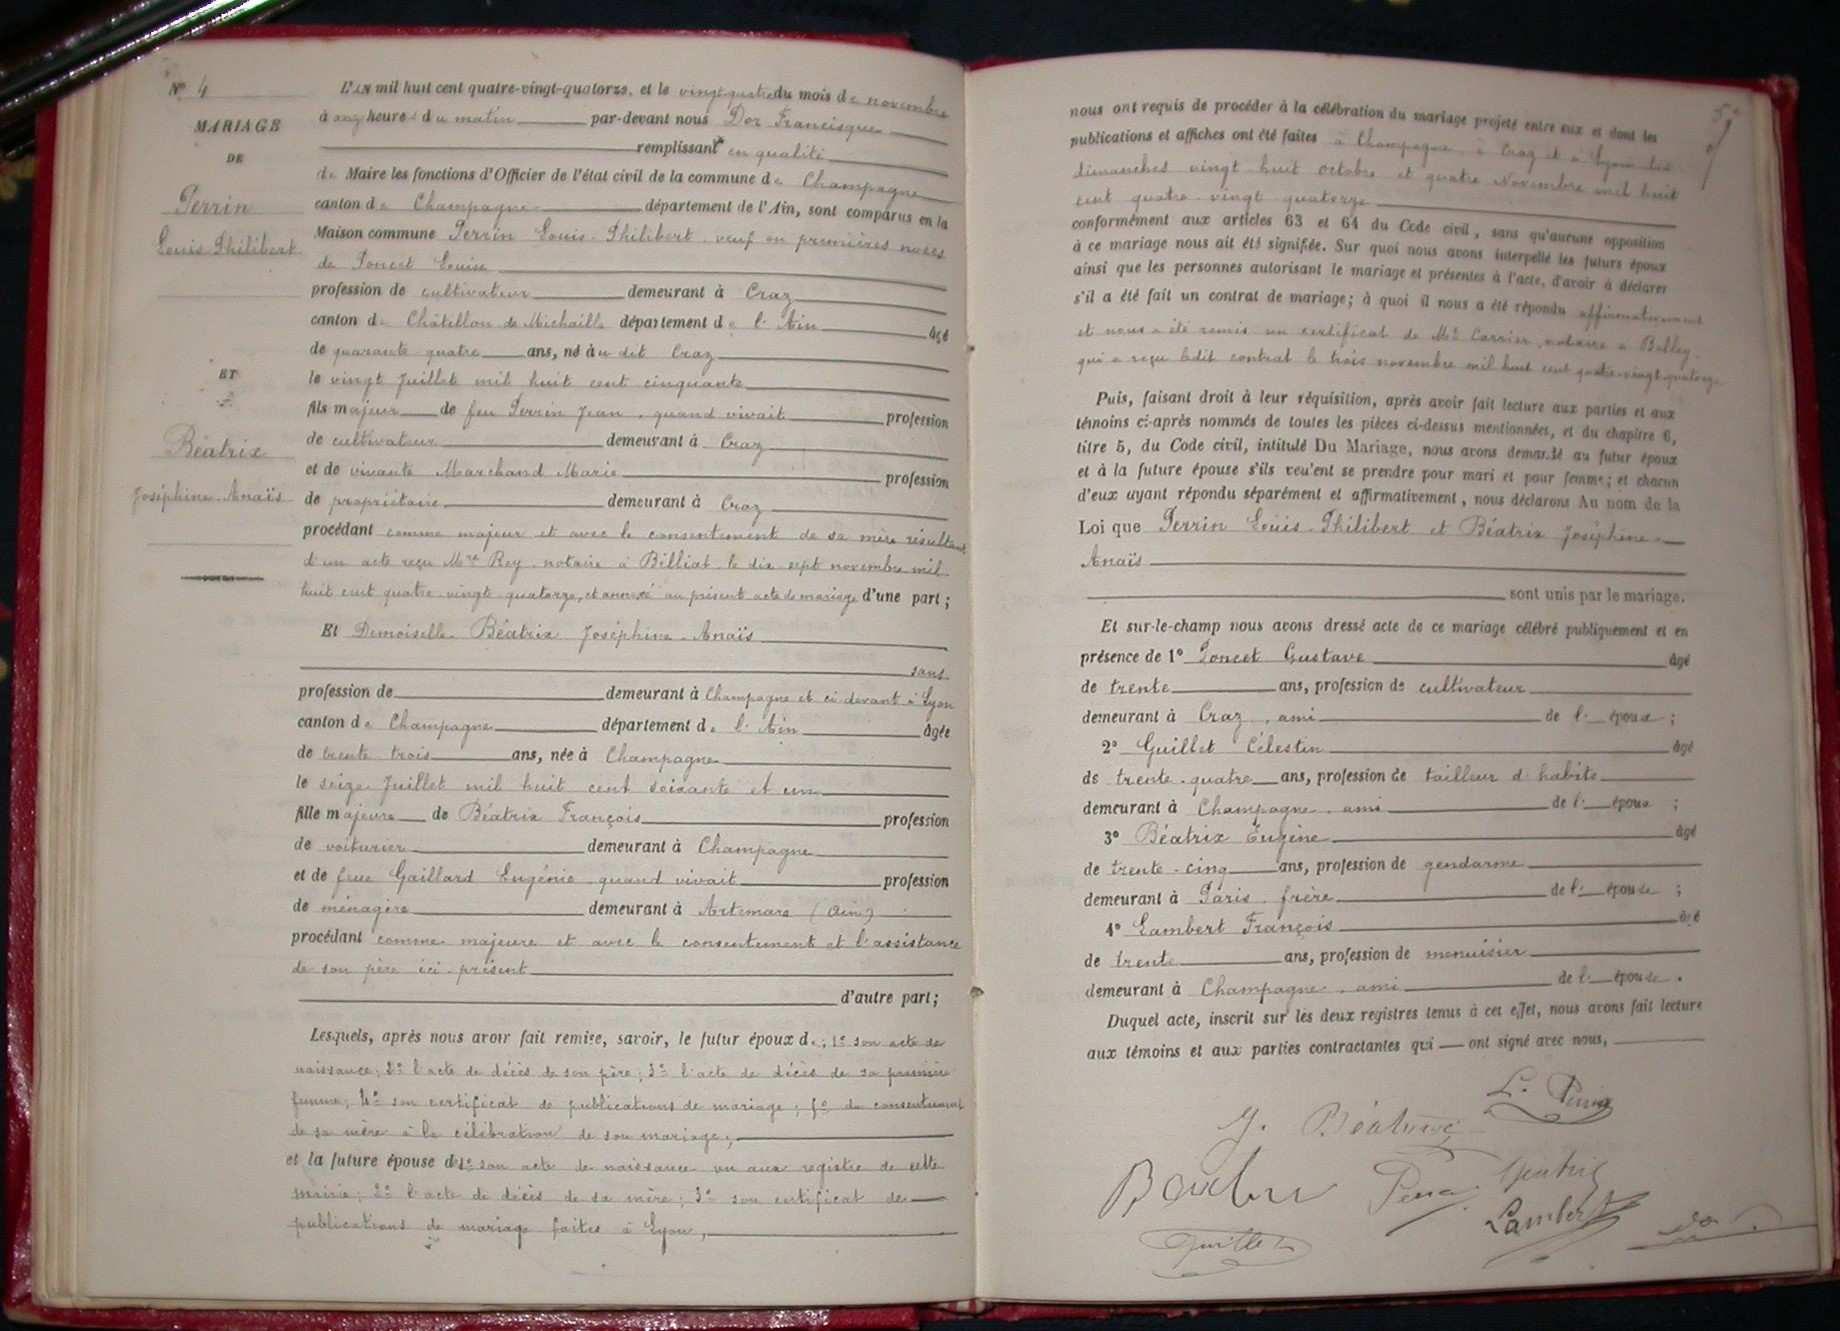 N° 4
MARIAGE
DE
Perrin
Louis Philibert
ET
Béatrix
Joséphine-Anaïs
L'AN mil huit cent quatre-vingt-quatorze, et le vingt-quatre du mois de novembre
à onze heures du matin par-devant nous Dor Francisque
remplissant en qualité
de Maire les fonctions d'Officier de l'état civil de la commune de Champagne
canton de Champagne département de l'Ain, sont comparus en la
Maison commune Perrin Louis-Philibert, veuf en premières noces
de Poncet Louise
profession de cultivateur demeurant à Craz
canton de Châtillon de Michaille département de l'Ain âgé
de quarante quatre ans, né à u dit Craz
le vingt Juillet mil huit cent cinquante
fils majeur de feu Perrin Jean, quand vivait profession
de cultivateur demeurant à Craz
et de vivante Marchand Marie profession
de propriétaire demeurant à Craz
procédant comme majeur et avec le consentement de sa mère résultant
d'un acte reçu Mre Rey, notaire à Billiat le dix sept novembre mil
huit cent quatre-vingt-quatorze, et annexé au présent acte de mariage d'une part;
Et Demoiselle Béatrix Joséphine-Anaïs
sans
profession de demeurant à Champagne et ci-devant à Lyon
canton de Champagne département de l'Ain âgée
de trente trois ans, née à Champagne
le seize Juillet mil huit cent soixante et un
fille majeure de Béatrix François profession
de voiturier demeurant à Champagne
et de feue Gaillard Eugénie, quand vivait profession
de ménagère demeurant à Artemare (Ain)
procédant comme majeure et avec le consentement et l'assistance
de son père ici présent
d'autre part;
Lesquels, après nous avoir fait remise, savoir, le futur époux de: 1° son acte de
naissance; 2° l'acte de décès de son père; 3° l'acte de décès de sa première
femme; 4° son certificat de publications de mariage; 5° du consentement
de sa mère à la célébration de son mariage;
et la future épouse de 1° son acte de naissance vu aux registre de cette
mairie; 2° l'acte de décès de sa mère; 3° son certificat de
publications de mariage faites à Lyon,
nous ont requis de procéder à la célébration du mariage projeté entre eux et dont les
publications et affiches ont été faites à Champagne, à Craz et à Lyon les
dimanches vingt-huit octobre et quatre Novembre mil huit
cent quatre-vingt-quatorze
conformément aux articles 63 et 64 du Code civil, sans qu'aucune opposition
à ce mariage nous ait été signifiée. Sur quoi nous avons interpellé les futurs époux
ainsi que les personnes autorisant le mariage et présentes à l'acte, d'avoir à déclarer
s'il a été fait un contrat de mariage; à quoi il nous a été répondu affirmativement
et nous a été remis un certificat de Me Carrier, notaire à Belley
qui a reçu ledit contrat le trois novembre mil huit cent quatre-vingt-quatorze
Puis, faisant droit à leur réquisition, après avoir fait lecture aux parties et aux
témoins ci-après nommés de toutes les pièces ci-dessus mentionnées, et du chapitre 6,
titre 5, du Code civil, intitulé Du Mariage, nous avons demandé au futur époux
et à la future épouse s'ils veulent se prendre pour mari et pour femme; et chacun
d'eux ayant répondu séparément et affirmativement, nous déclarons Au nom de la
Loi que Perrin Louis-Philibert et Béatrix Joséphine-
Anaïs
sont unis par le mariage.
Et sur-le-champ nous avons dressé acte de ce mariage célébré publiquement et en
présence de 1° Poncet Gustave âgé
de trente ans, profession de cultivateur
demeurant à Craz, ami de l'époux;
2° Guillet Célestin âgé
de trente-quatre ans, profession de tailleur d'habits
demeurant à Champagne, ami de l'époux;
3° Béatrix Eugène âgé
de trente-cinq ans, profession de gendarme
demeurant à Paris, frère de l'épouse;
4° Lambert François âgé
de trente ans, profession de menuisier
demeurant à Champagne, ami de l'épouse.
Duquel acte, inscrit sur les deux registres tenus à cet effet, nous avons fait lecture
aux témoins et aux parties contractantes qui ont signé avec nous,
L. Perrin
J. Béatrix
Lambert
Guillet
Dor